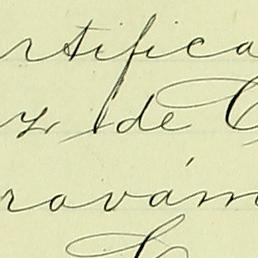 rtifica
z, de
ravám